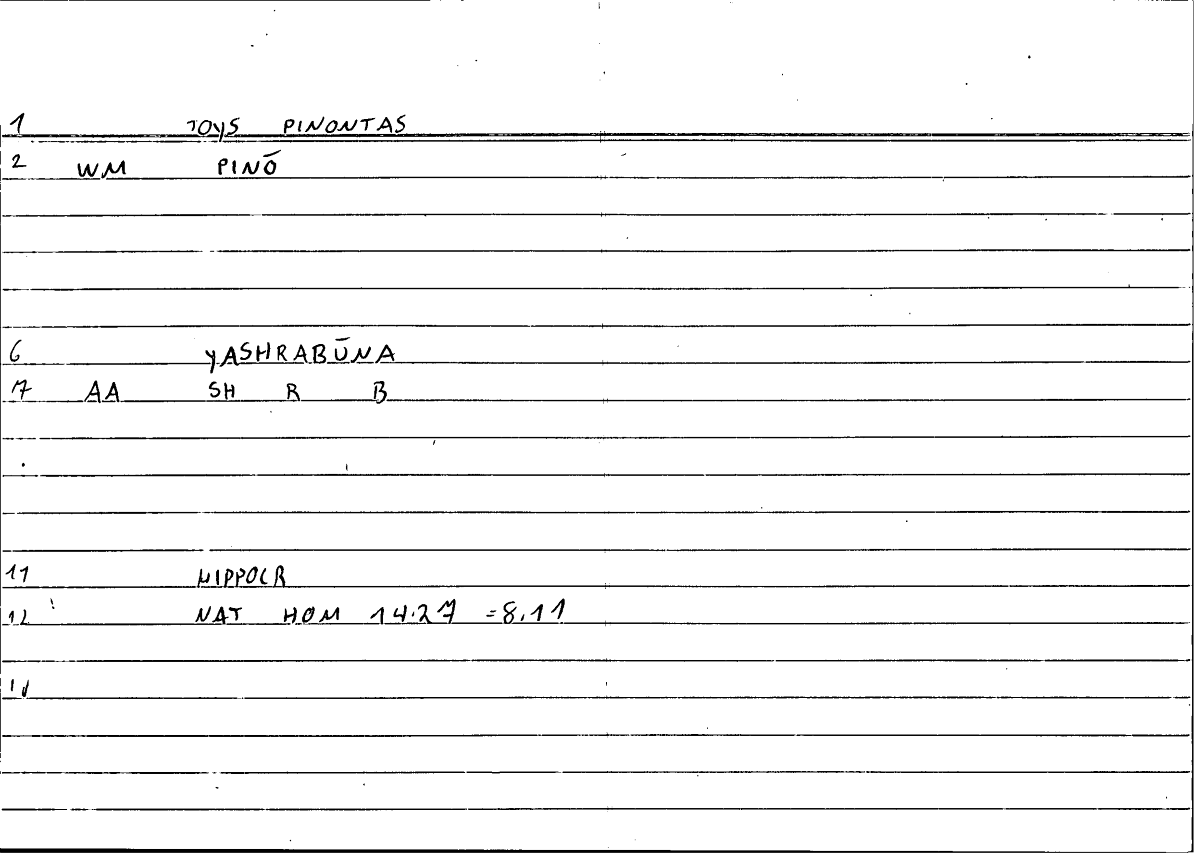 1 TOYS PINONTAS
2 WM PINŌ
6 YASHRABŪNA
7 AA SH R B
11 HIPPOCR
12 NAT HOM 14.27 =8.11